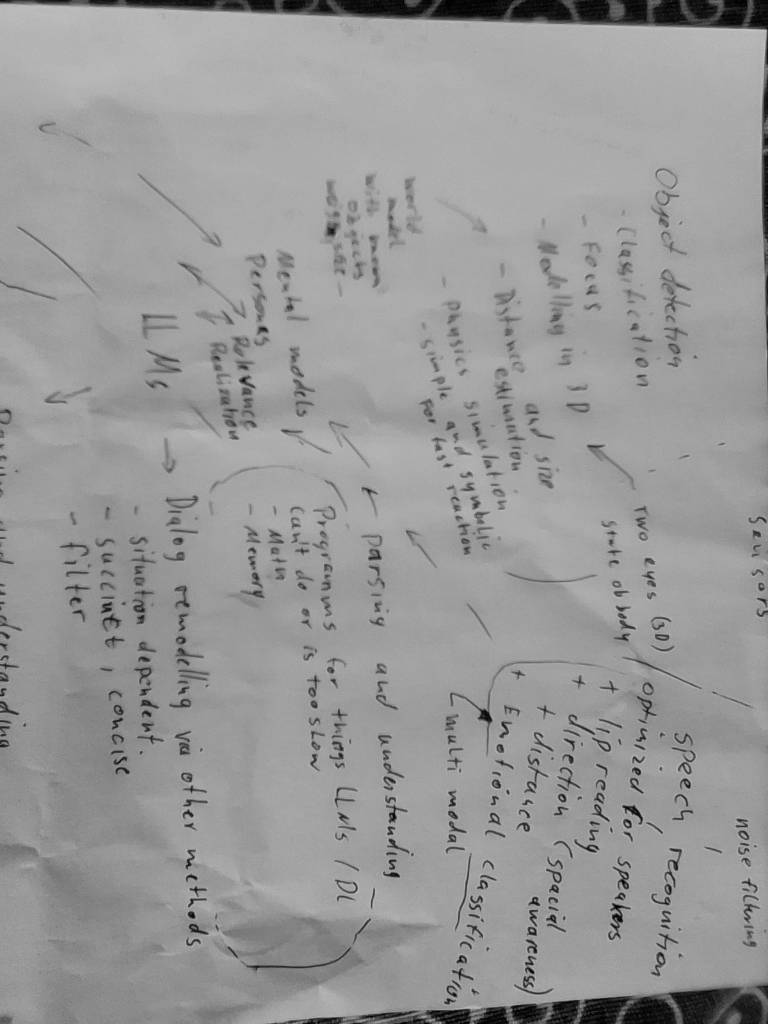 Sensors
noise filtering
Two eyes (3D)
state of body
Object detection
- Classification
- Focus
- Modelling in 3D
- Distance and size
estimation
- physics simulation
- simple and symbolic
for fast reaction
Speech recognition
optimized for speakers
+ lip reading
+ direction (spacial
+ distance awareness)
+ Emotional classification
multi modal
world
model
with
objects
parsing and understanding
Mental models
Personas
Relevance
Realization
Programms for things LLMs / DL
can't do or is too slow
- Math
- Memory
LLMs
Dialog remodelling via other methods
- situation dependent.
- succinct, concise
- filter
Parsing and understanding